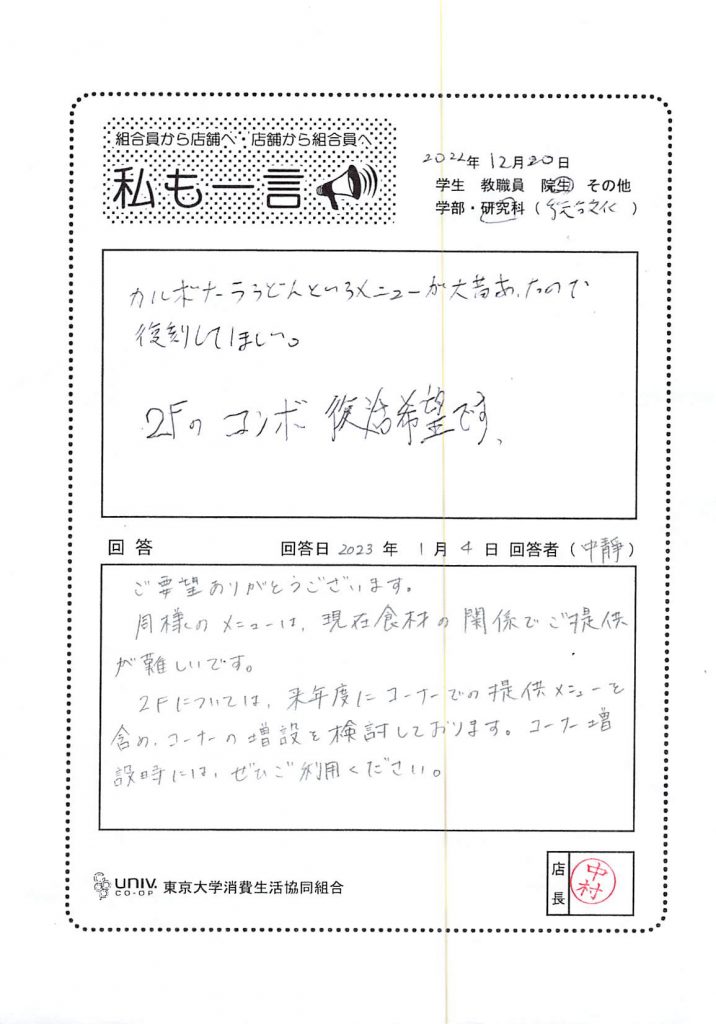 組合員から店舗へ・店舗から組合員へ
私も一言
2022年 12月20日
学生 教職員 院生 その他
学部・研究科 ( )
カルボナーラうどんというメニューが大昔あったので
復刻してほしい。
2Fの コンボ 復活希望です、
回答 回答日 2023 年 1 月 4 日 回答者 (中静)
ご要望ありがとうございます。
同様のメニューは、現在食材の関係でご提供
が難しいです。
2Fについては、来年度にコーナーでの提供メニューを
含め、コーナーの増設を検討しております。コーナー増
設時には、ぜひご利用ください。
UNIV. CO-OP 東京大学消費生活協同組合
店長
中村